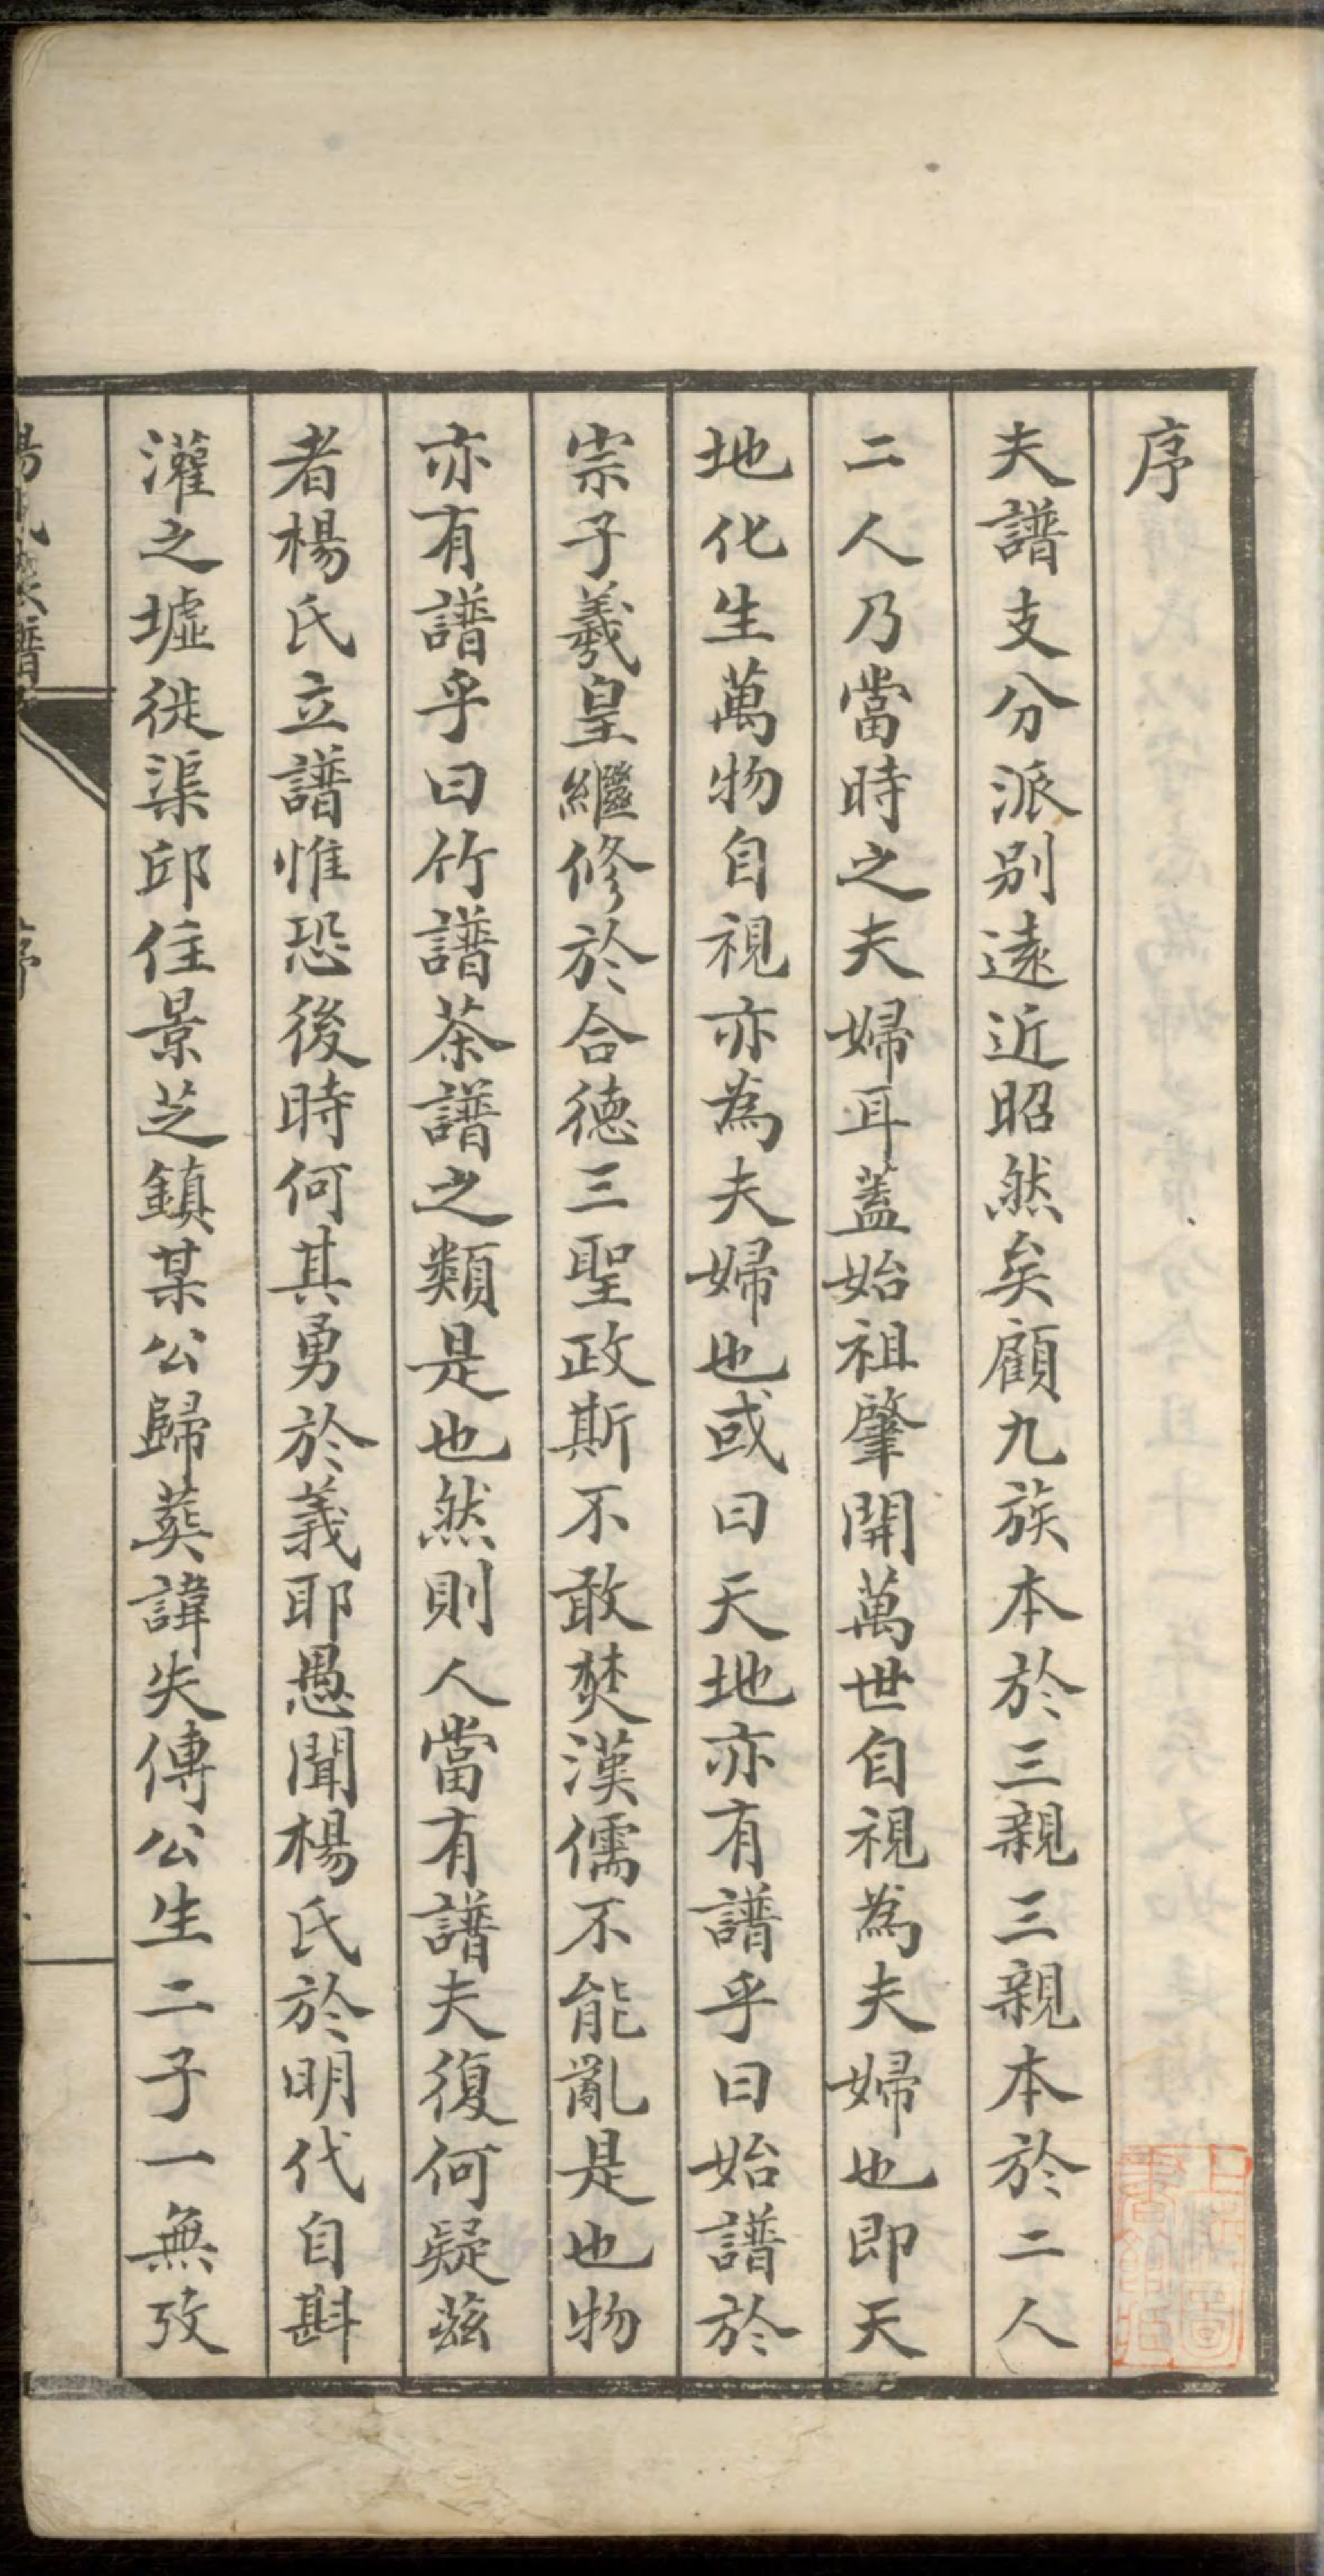 序
夫譜支分派別遠近昭然矣顧九族本於三親三親本於二人
二人乃當時之夫婦耳葢始祖肇開萬世自視為夫婦也即天
地化生萬物自視亦為夫婦也或曰天地亦有譜乎曰始譜於
宗子羲皇繼修於合德三聖政斯不敢焚漢儒不能亂是也物
亦有譜乎曰竹譜茶譜之類是也然則人當有譜夫復何疑茲
者楊氏立譜惟恐後時何其勇於義耶愚聞楊氏於明代自斟
灌之墟徙渠邱住景芝鎮某公歸葬諱失傳公生二子一無攷
序